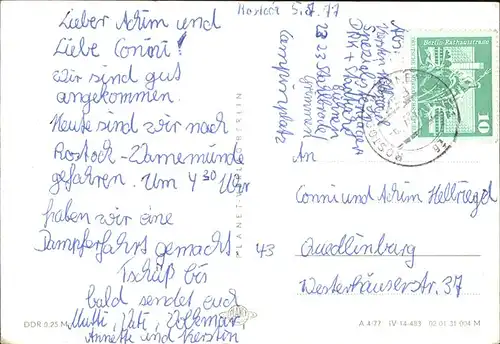 Lieber Achim und
Liebe Conni!
Wir sind gut
angekommen.
Heute sind wir nach
Rostock-Warnemünde
gefahren. Um 4 30 Uhr
haben wir eine
Dampferfahrt gemacht.
Tschüß bis
bald sendet euch
Mutti, Vati, Volkmar,
Annette und Kerstin
DDR 0,25 M
PLANET-VERLAG BERLIN
43
5.8.77
Abs:
Campingplatz
Berlin, Rathausstraße
DDR
10
ROSTOCK
An
Conni und Achim Hellriegel
Quedlinburg
Westerhäuserstr. 37
A 4/77 IV-14-483 02 01 31 004 M